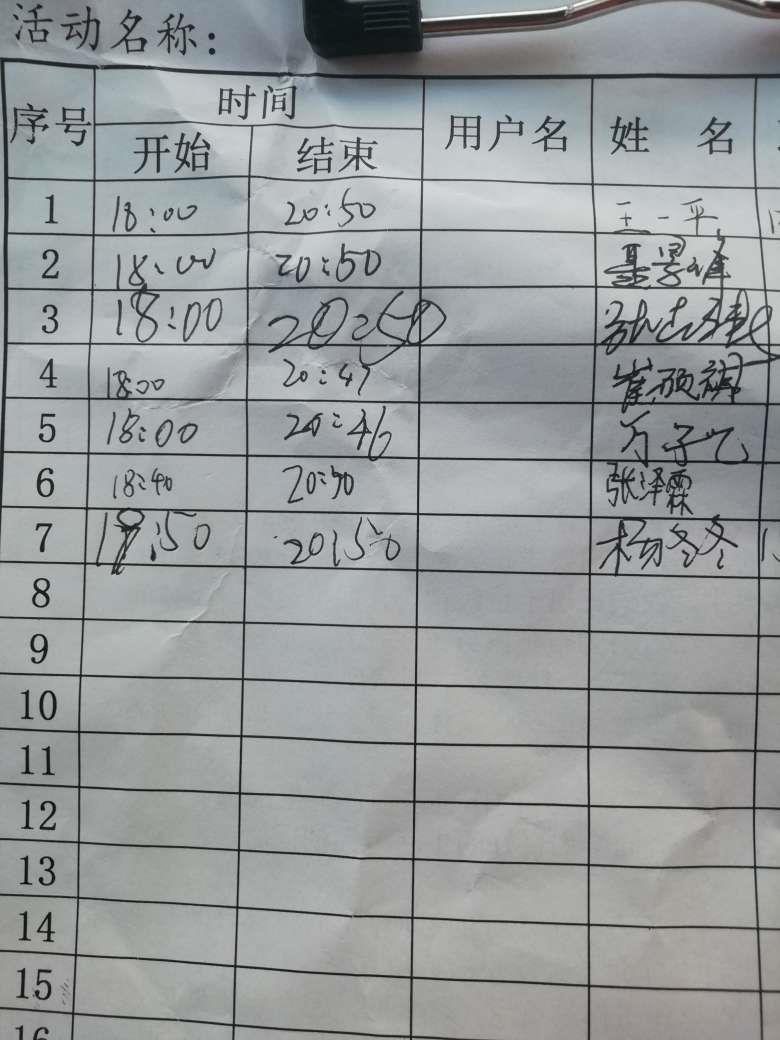 活动名称：
序号 时间 用户名 姓 名
开始 结束
1 18:00 20:50 王一平
2 18:00 20:50
3 18:00 20:50
4 18:00 20:47 崔硕
5 18:00 20:46 万子飞
6 18:40 20:50 张泽霖
7 :50 20:50 杨冬冬
8
9
10
11
12
13
14
15
16